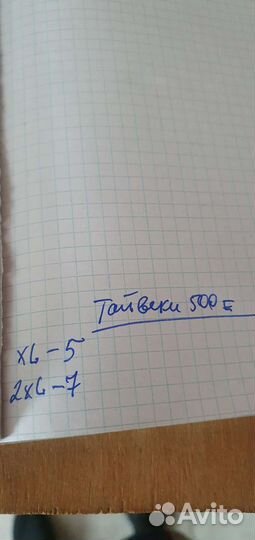 Тайвеки 500 Е
XL - 5
2XL - 7
Avito